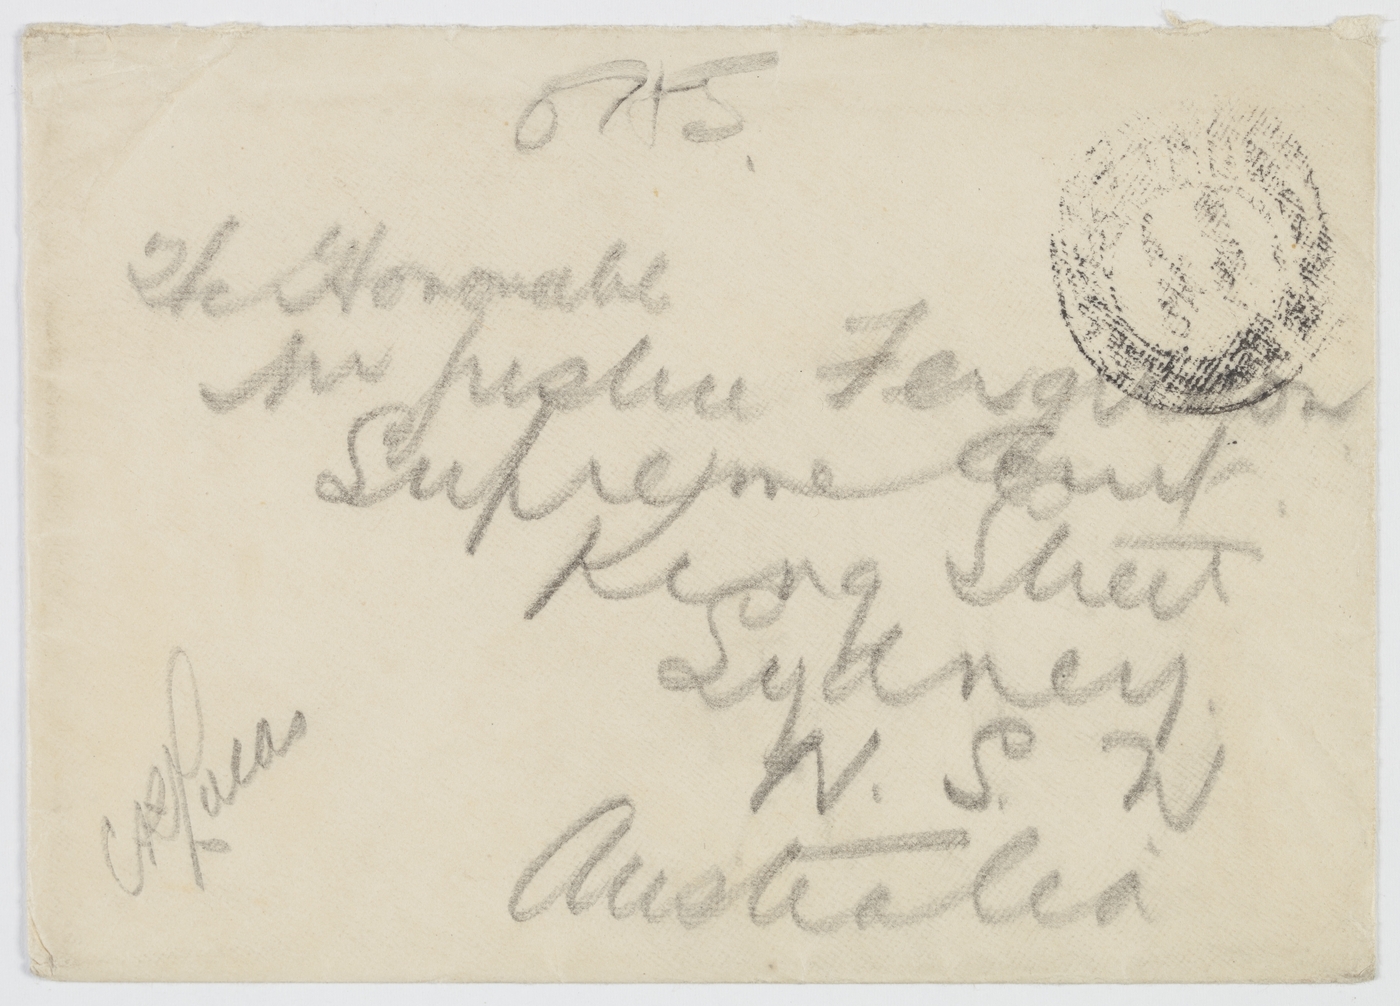 The Honorable
Mr Justice Ferguson
Supreme Court
King Street
Sydney.
N. S. W
Australia
Lucas